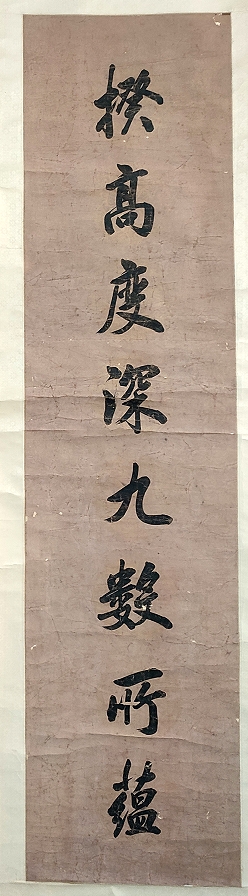 揆高度深九數所蘊